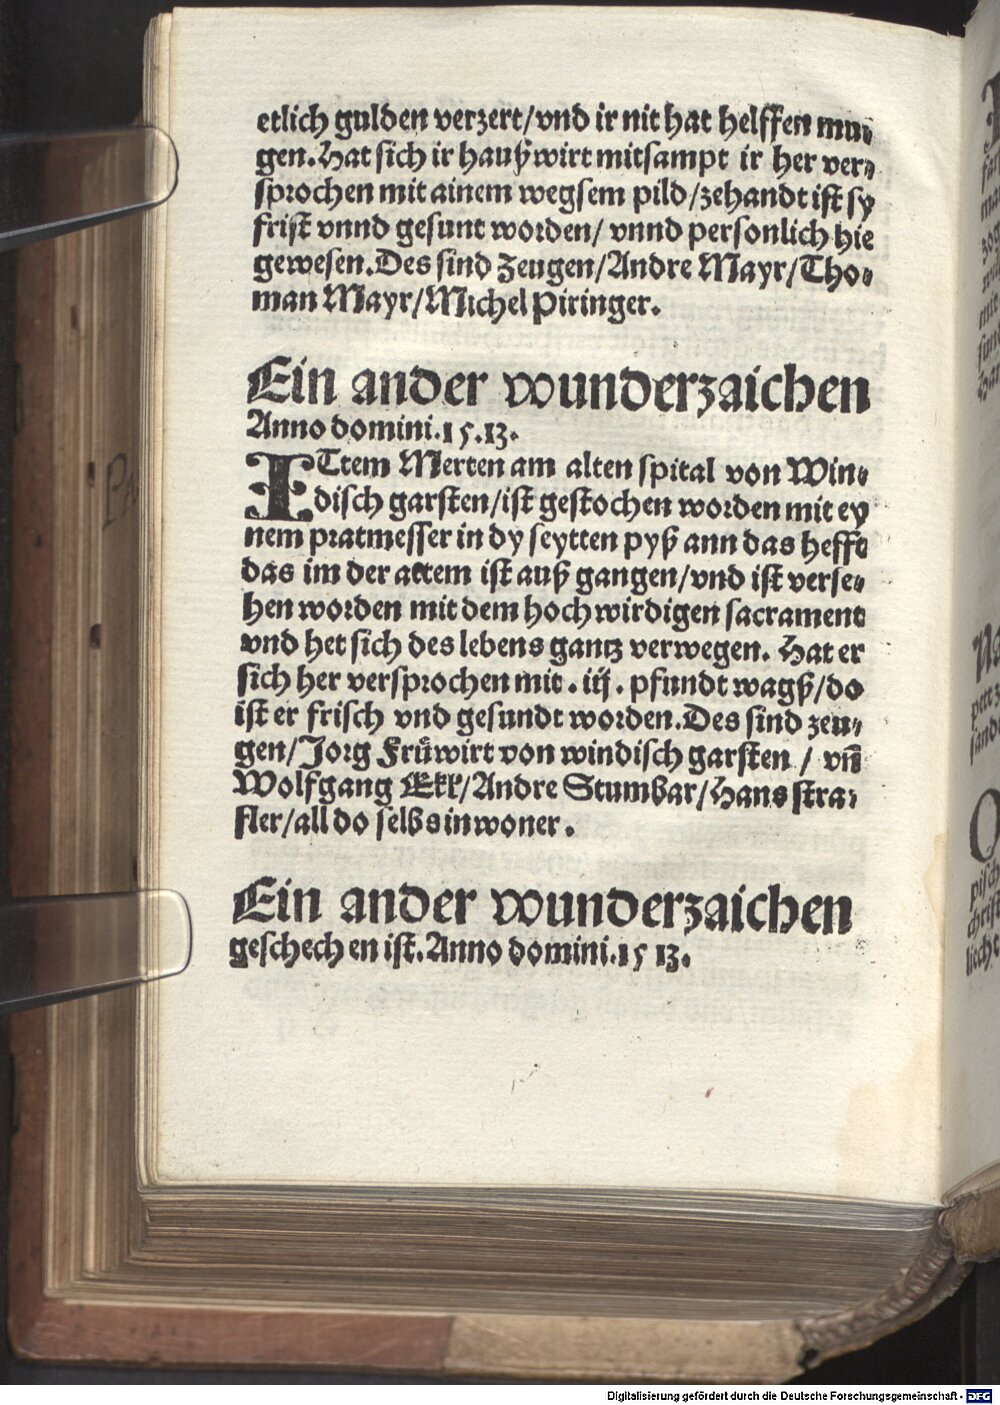 etlich gulden verzert/vnd ir nit hat helffen mü⸗
gen. Hat sich ir haußwirt mitsampt ir her ver⸗
sprochen mit ainem wegsem pild/zehandt ist sy
frist vnnd gesunt worden/ vnnd personlich hie
gewesen. Des sind Zeugen/Andre Mayr/Tho⸗
man Mayr/Michel Piringer.
Ein ander wunderzaichen
Anno domini. 15. 13.
ITtem Merten am alten spital von Win⸗
disch garsten/ist gestochen worden mit ey
nem pratmesser in dy seytten pyß ann das heffe
das im der attem ist auß gangen/vnd ist verse⸗
hen worden mit dem hoch wirdigen sacrament
vnd het sich des lebens gantz verwegen. Hat er
sich her versprochen mit . iij . pfundt wagß/do
ist er frisch vnd gesundt worden. Des sind zeu⸗
gen/Jorg Früwirt von windisch garsten / vñ
Wolfgang Ekl/Andre Stumbar/Hans stra⸗
fler/all do selbs inwoner.
Ein ander wunderzaichen
geschech en ist. Anno domini. 15 13.
PA
Digitalisierung gefördert durch die Deutsche Forschungsgemeinschaft - DFG